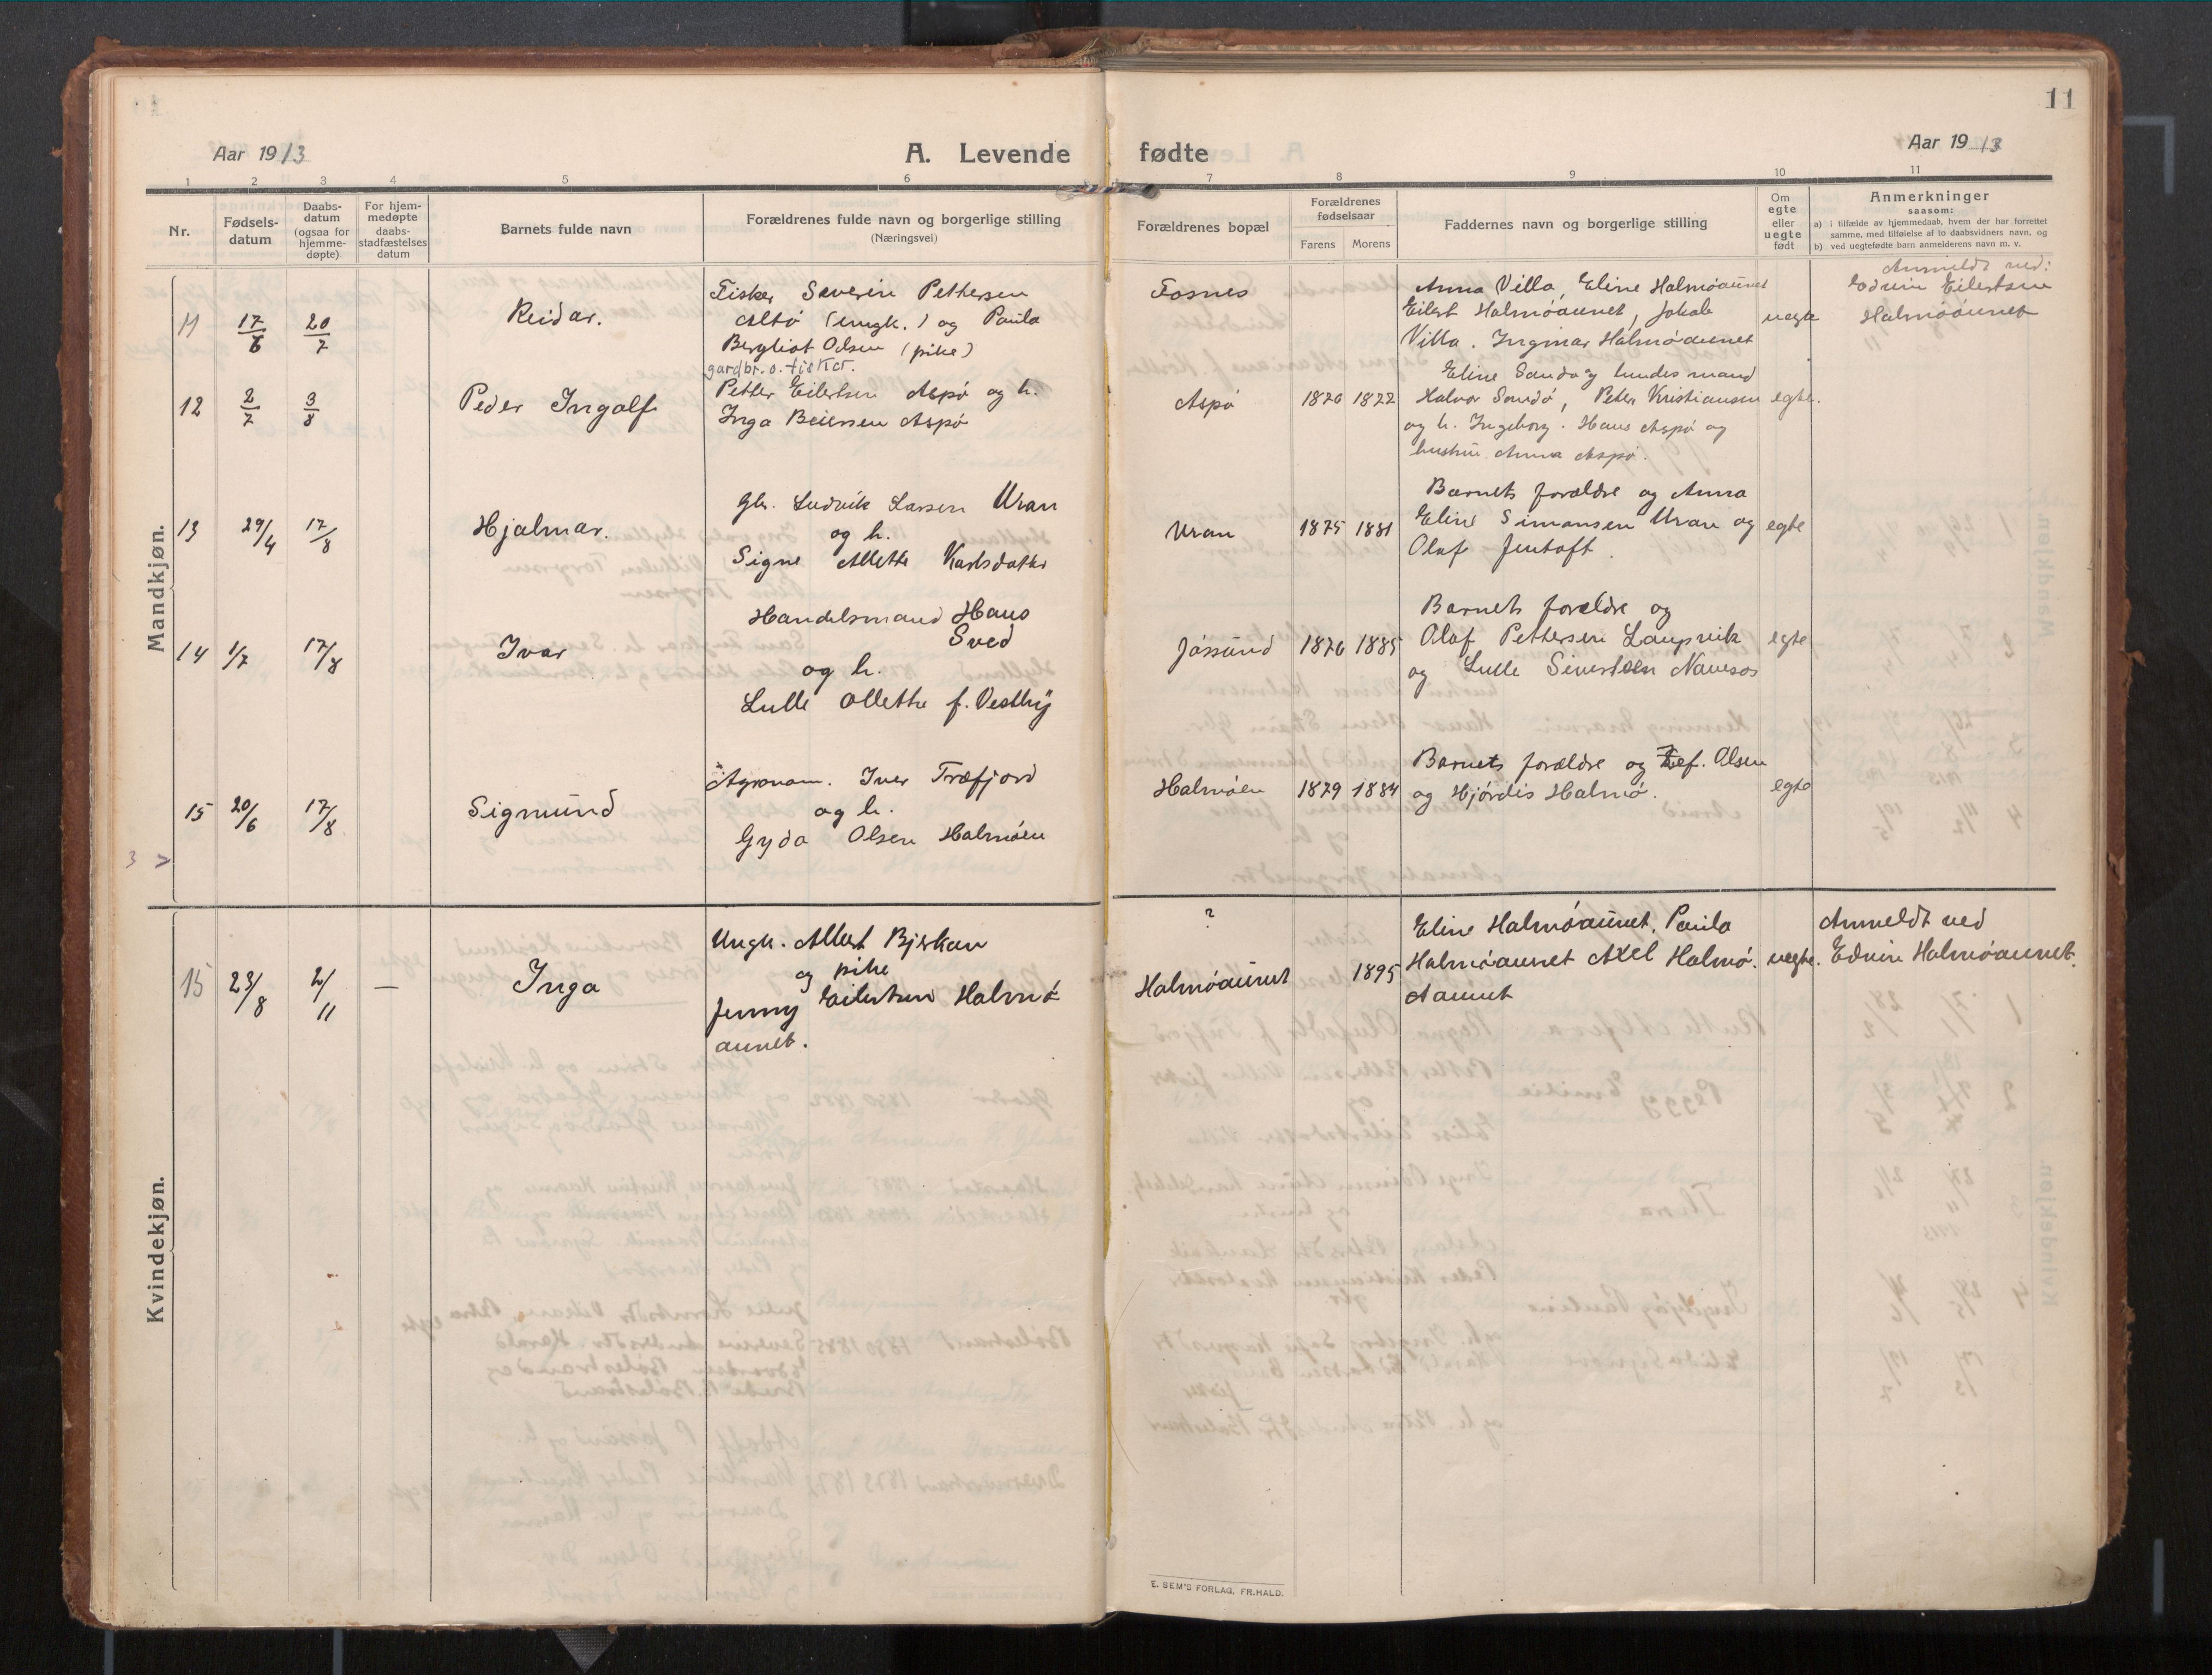 11
Aar 1913
A. Levende fødte
Aar 1913
1 2 3 4 5 6 7 8 9 10 11
Nr.
Fødsels-
datum
Daabs-
datum
(ogsaa for
hjemme-
døpte)
For hjem-
medøpte
daabs-
stadfæstelses
datum
Barnets fulde navn
Forældrenes fulde navn og borgerlige stilling
(Næringsvei)
Forældrenes bopæl
Forældrenes
fødselsaar
Farens Morens
Faddernes navn og borgerlige stilling
Om
egte
eller
uegte
født
Anmerkninger
saasom:
a) i tilfælde av hjemmedaab, hvem der har forrettet
samme, med tilføielse af to daabsvidners navn, og
b) ved uegtefødte barn anmelderens navn m. v.
Mandkjøn.
11 17/6 20/7 Reidar.
Fisker Severin Pettersen
Altø (ungk.) og Paula
Bergliot Olsen (pike)
Fosnes
Anna Villa, Eline Halmøaunet
Eilert Halmøaunet, Jakob
Villa. Ingmar Halmøaunet
uegte
Anmeldt ved:
Edvin Eilertsen
Halmøaunet
12 2/7 3/8 Peder Ingolf
gardbr. o. fisker.
Petter Eilertsen Aspø og h.
Inga Beiersen Aspø
Aspø 1870 1872
Eline Sandø lensmand
Halvor Sandø, Peter Kristiansen
og h. Ingeborg. Hans Aspø og
hustru Anna Aspø.
egte.
13 29/4 17/8 Hjalmar.
Gbr. Ludvik Larsen Uran
og h.
Signe Alette Karlsdatter
Uran 1875 1881
Barnets forældre og Anna
Eline Simonsen Uran og
Olaf Jentoft.
egte
14 1/7 17/8 Ivar
Handelsmand Hans
Sved
og h.
Lulle Ollette f. Vestby
Jøssund 1876 1885
Barnets forældre og
Olaf Pettersen Laupvik
og Lulle Sivertsen Navesos
egte
15 20/6 17/8 Sigmund
Agronom. Iver Træfjord
og h.
Gyda Olsen Halmøen
Halmøen 1879 1884
Barnets forældre og Lef. Olsen
og Hjørdis Halmø.
egte
3 >
Kvindekjøn.
15 23/8 2/11 — Inga
Ungk. Albert Bjerkan
og pike
Jenny Eilertsen Halmø-
aunet.
?
Halmøaunet 1895
Eline Halmøaunet, Paula
Halmøaunet Axel Halmø.
Aaunet
uegte.
Anmeldt ved
Edvin Halmøaunet.
E. SEM'S FORLAG, FR.HALD.